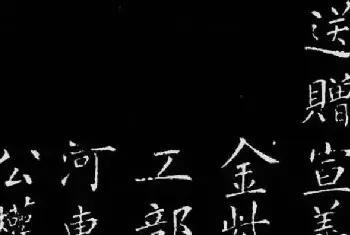 送贈宣義
金
工部
河東
公